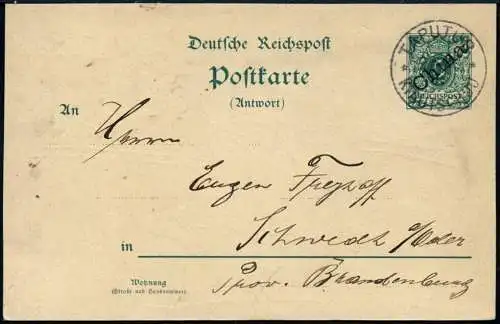 Deutsche Reichspost
Postkarte
(Antwort)
TAPUTUR
China
REICHSPOST
KIAUTSCHOU
An
Herrn
Eugen
Schwedt a/Oder
in
Prov. Brandenburg
Wohnung
(Straße und Hausnummer)